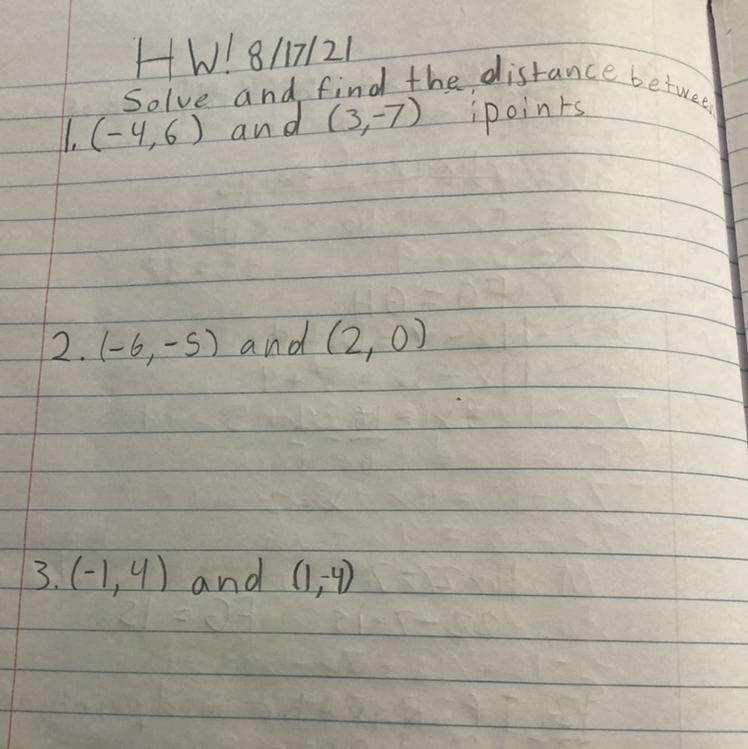 HW! 8/17/21
Solve and find the distance between
1. (-4,6) and (3,-7) ; points
2. (-6,-5) and (2,0)
3. (-1,4) and (1,-4)